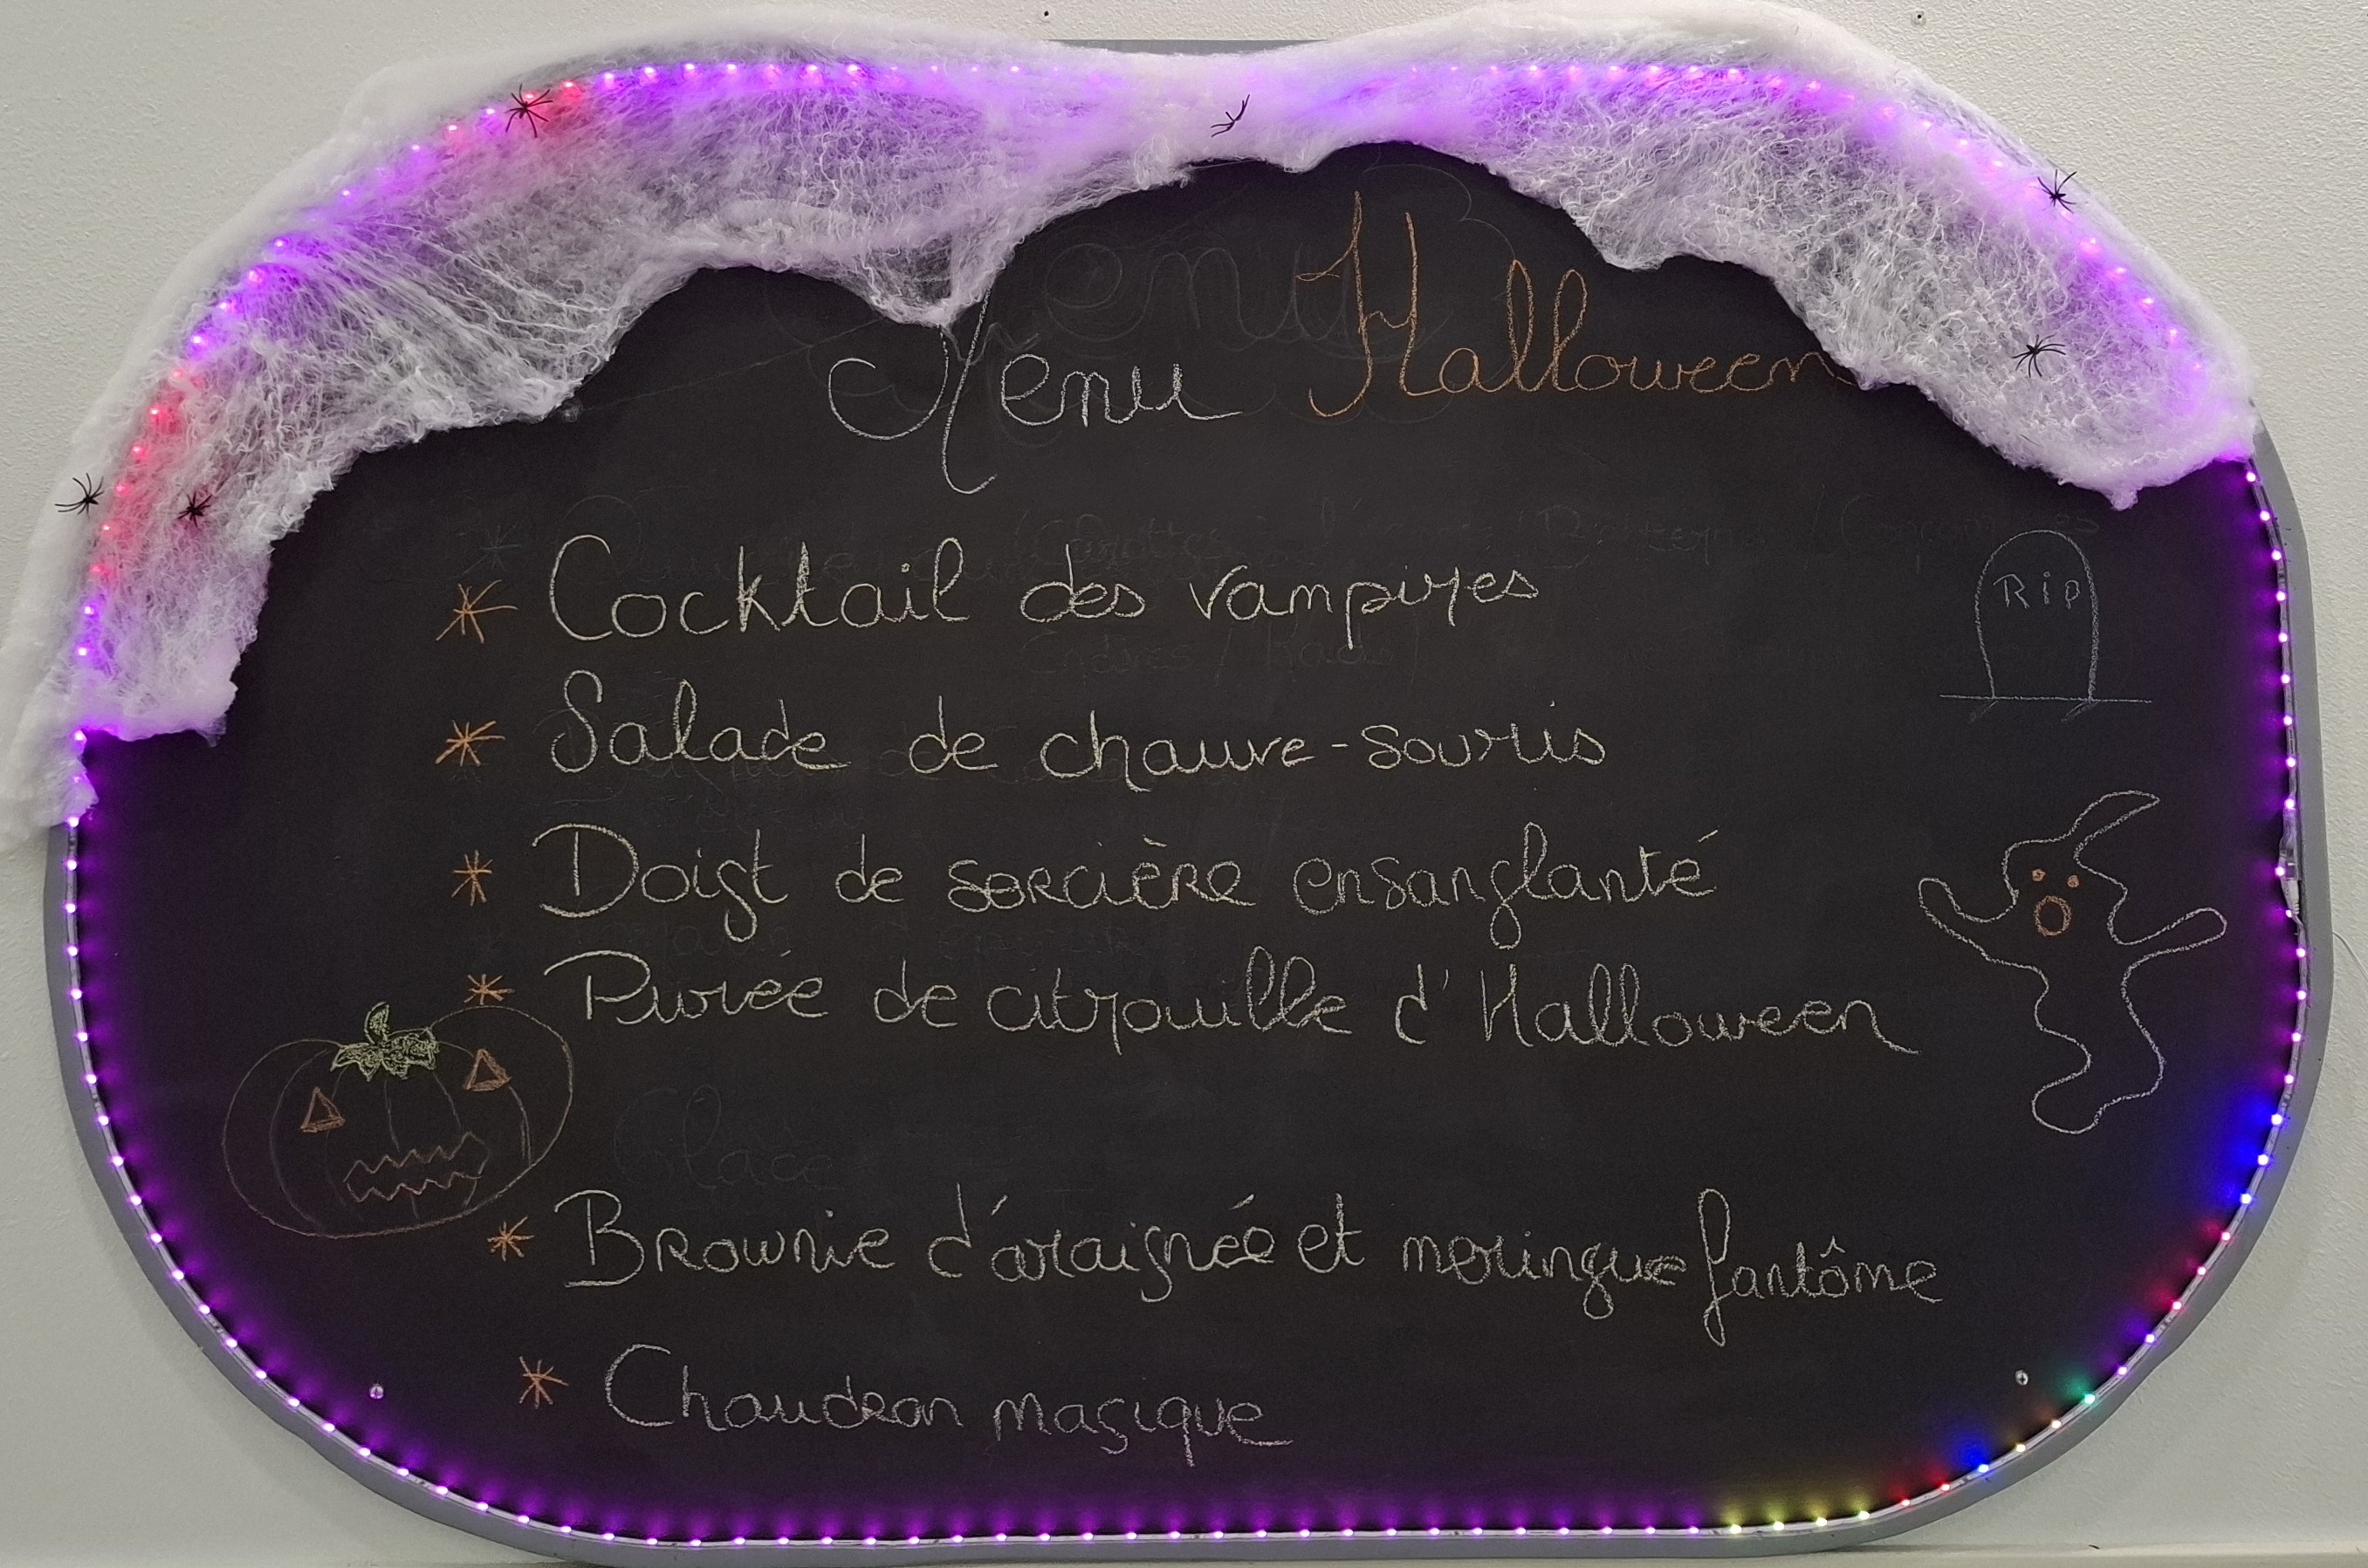 Menu Halloween
* Cocktail des vampires
Rip
* Salade de chauve-souris
* Doigt de sorcière ensanglanté
* Purée de citrouille d'Halloween
Glace
* Brownie d'araignée et meringue fantôme
* Chaudron magique